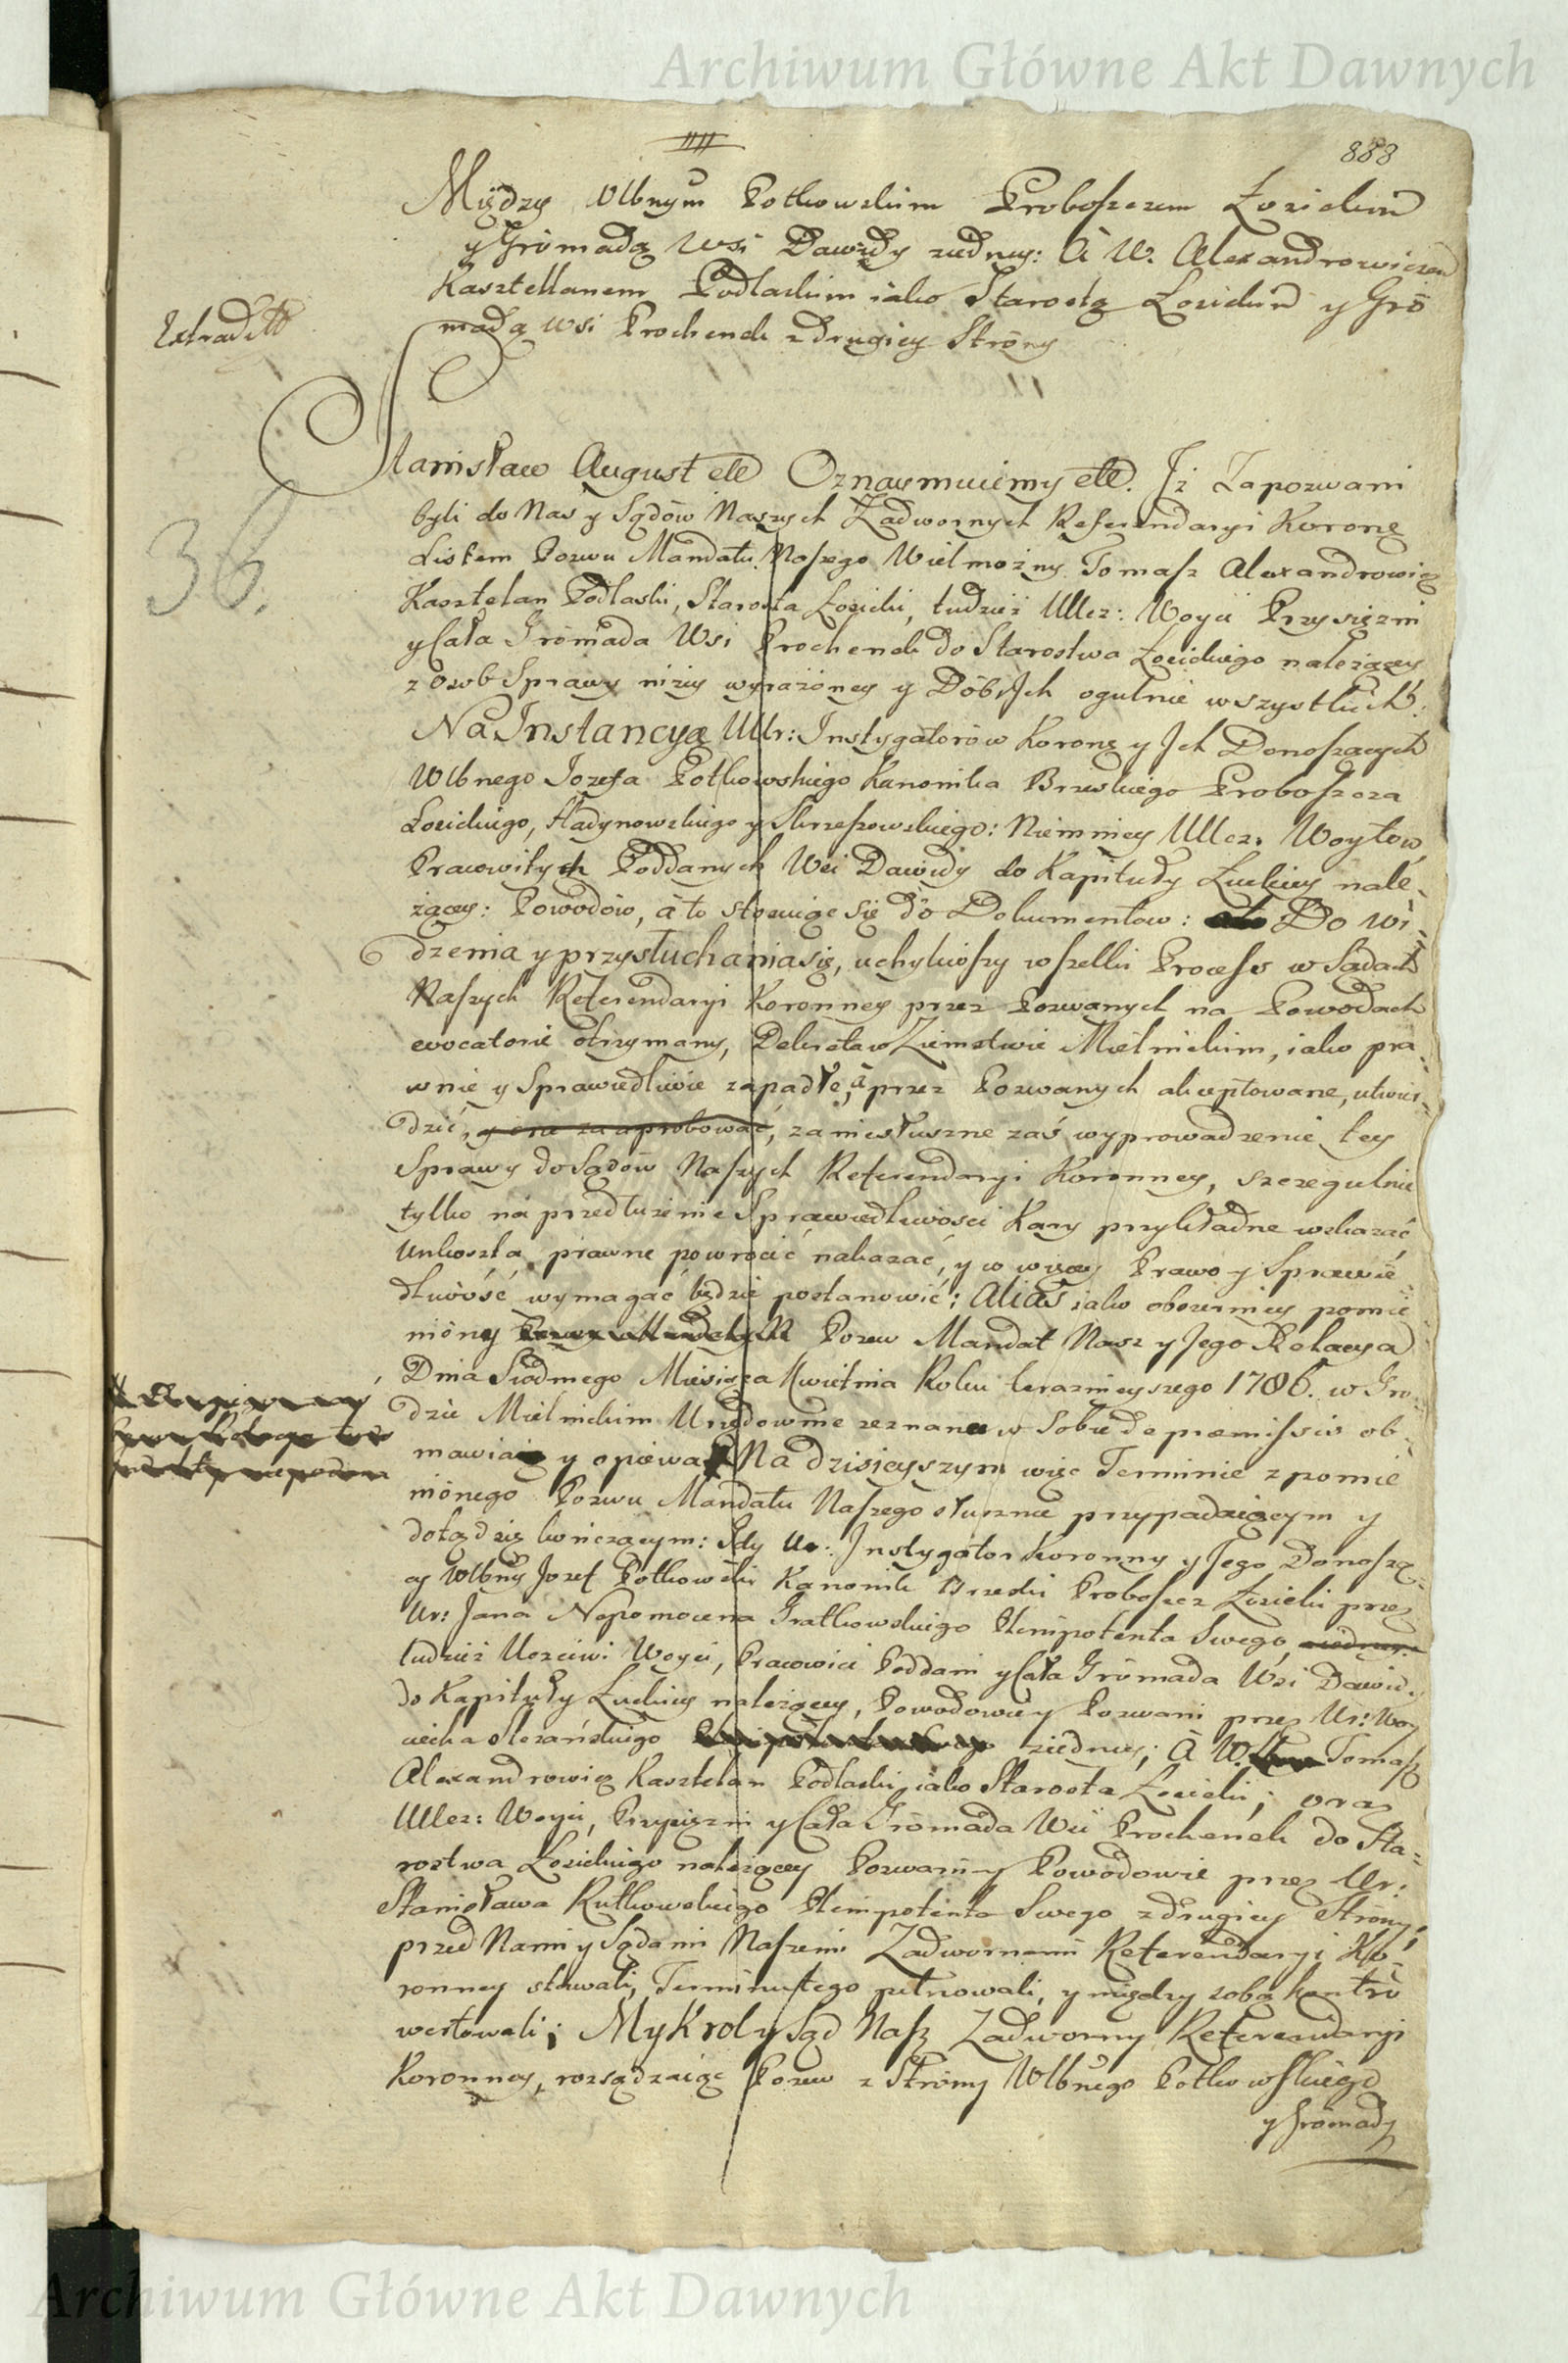 Archiwum Główne Akt Dawnych
888
Między Wlbnym Potkowskim Proboszczem Łosickim
y Gromadą Wsi Dawidy z iedney: A W. Alexandrowiczem
Kasztellanem Podlaskim iako Starostą Łosickim y Gro
madą Wsi Prochenek z drugiey Strony
Extradtt
36.
Stanisław August ett Oznaymuiemy ett. Jż Zapozwani
byli do Nas y Sądów Naszych Zadwornych Referendaryi Koronę
Listem Pozwu Mandatu Naszego Wielmożny Tomasz Alexandrowicz
Kasztelan Podlaski, Starosta Łosicki, tudzież Ullcz: Woyci Przysiężni
y Cała Gromada Wsi Prochenek do Starostwa Łosickiego należącey
z Osob Sprawy niżey wyrażoney y Dóbr Jch ogulnie wszystkich:
Na Jnstancyą Ullr: Jnstygatorów Koronę y Jch Donoszących
Wlbnego Jozefa Potkowskiego Kanonika Brzeskiego Proboszcza
Łosickiego, Hadynowskiego y Skrzeszowskiego: Niemniey Ullcz: Woytow
Pracowitych Poddanych Wsi Dawidy do Kapituły Łuckiey nale-
żącey: Powodów, a to stosuiąc się do Dokumentow: Do wi-
dzenia y przysłuchania się, uchyliwszy wszelki Process w Sądach
Naszych Referendaryi Koronney przez Pozwanych na Powodach
evocatorie otrzymany, Dekreta w Ziemstwie Mielnickim, iako pra-
wnie y Sprawiedliwie zapadłe, a przez Pozwanych akceptowane, utwier-
dzić, y one zaaprobować, za niesłuszne zaś wyprowadzenie tey
Sprawy do Sądów Naszych Referendaryi Koronney, szczegulnie
tylko na przedłużenie Sprawiedliwości Kary przykładne wskazać
Unkoszta prawne powrócić nakazać, y co więcey Prawo y Sprawie
dliwość wymagać będzie postanowić; Alias iako obszerniey pomie
niony Pozew Mandat Nasz y Jego Relacya
Dnia Siodmego Miesiąca Kwietnia Roku teraznieyszego 1786. w Gro-
dzie Mielnickim Urzędownie zeznana w Sobie de præmissis ob-
mawia y opiewa Na dzisieyszym więc Terminie z pomie
nionego Pozwu Mandatu Naszego słusznie przypadaiącym y
dotąd się kończącym: Gdy Ur: Jnstygator Koronny y Jego Donoszą-
cy Wlbny Jozef Potkowski Kanonik Brzeski Proboszcz Łosicki przez
Ur: Jana Nepomocena Gratkowskiego Plenipotenta Swego,
tudzież Uczciwi Woyci, Pracowici Poddani y Cała Gromada Wsi Dawid.
do Kapituły Łuckiey należącey, Powodowie y Pozwani przez Ur: Woy
ciecha z iedney; A W. Tomasz
Alexandrowicz Kasztelan Podlaski iako Starosta Łosicki; oraz
Ullcz: Woyci, Przysiężni y Cała Gromada Wsi Prochenek do Sta-
rostwa Łosickiego należącey Pozwani y Powodowie przez Ur:
Stanisława Rutkowskiego Plenipotenta Swego z drugiey Strony,
przed Nami y Sądami Naszemi Zadwornemi Referendaryi Ko-
ronney stawali, Terminu tego pilnowali, y między sobą kontro
wertowali; My Krol y Sąd Nasz Zadworny Referendaryi
Koronney, rozsądzaiąc Pozew z Strony Wlbnego Potkowskiego
y Gromady
Archiwum Główne Akt Dawnych